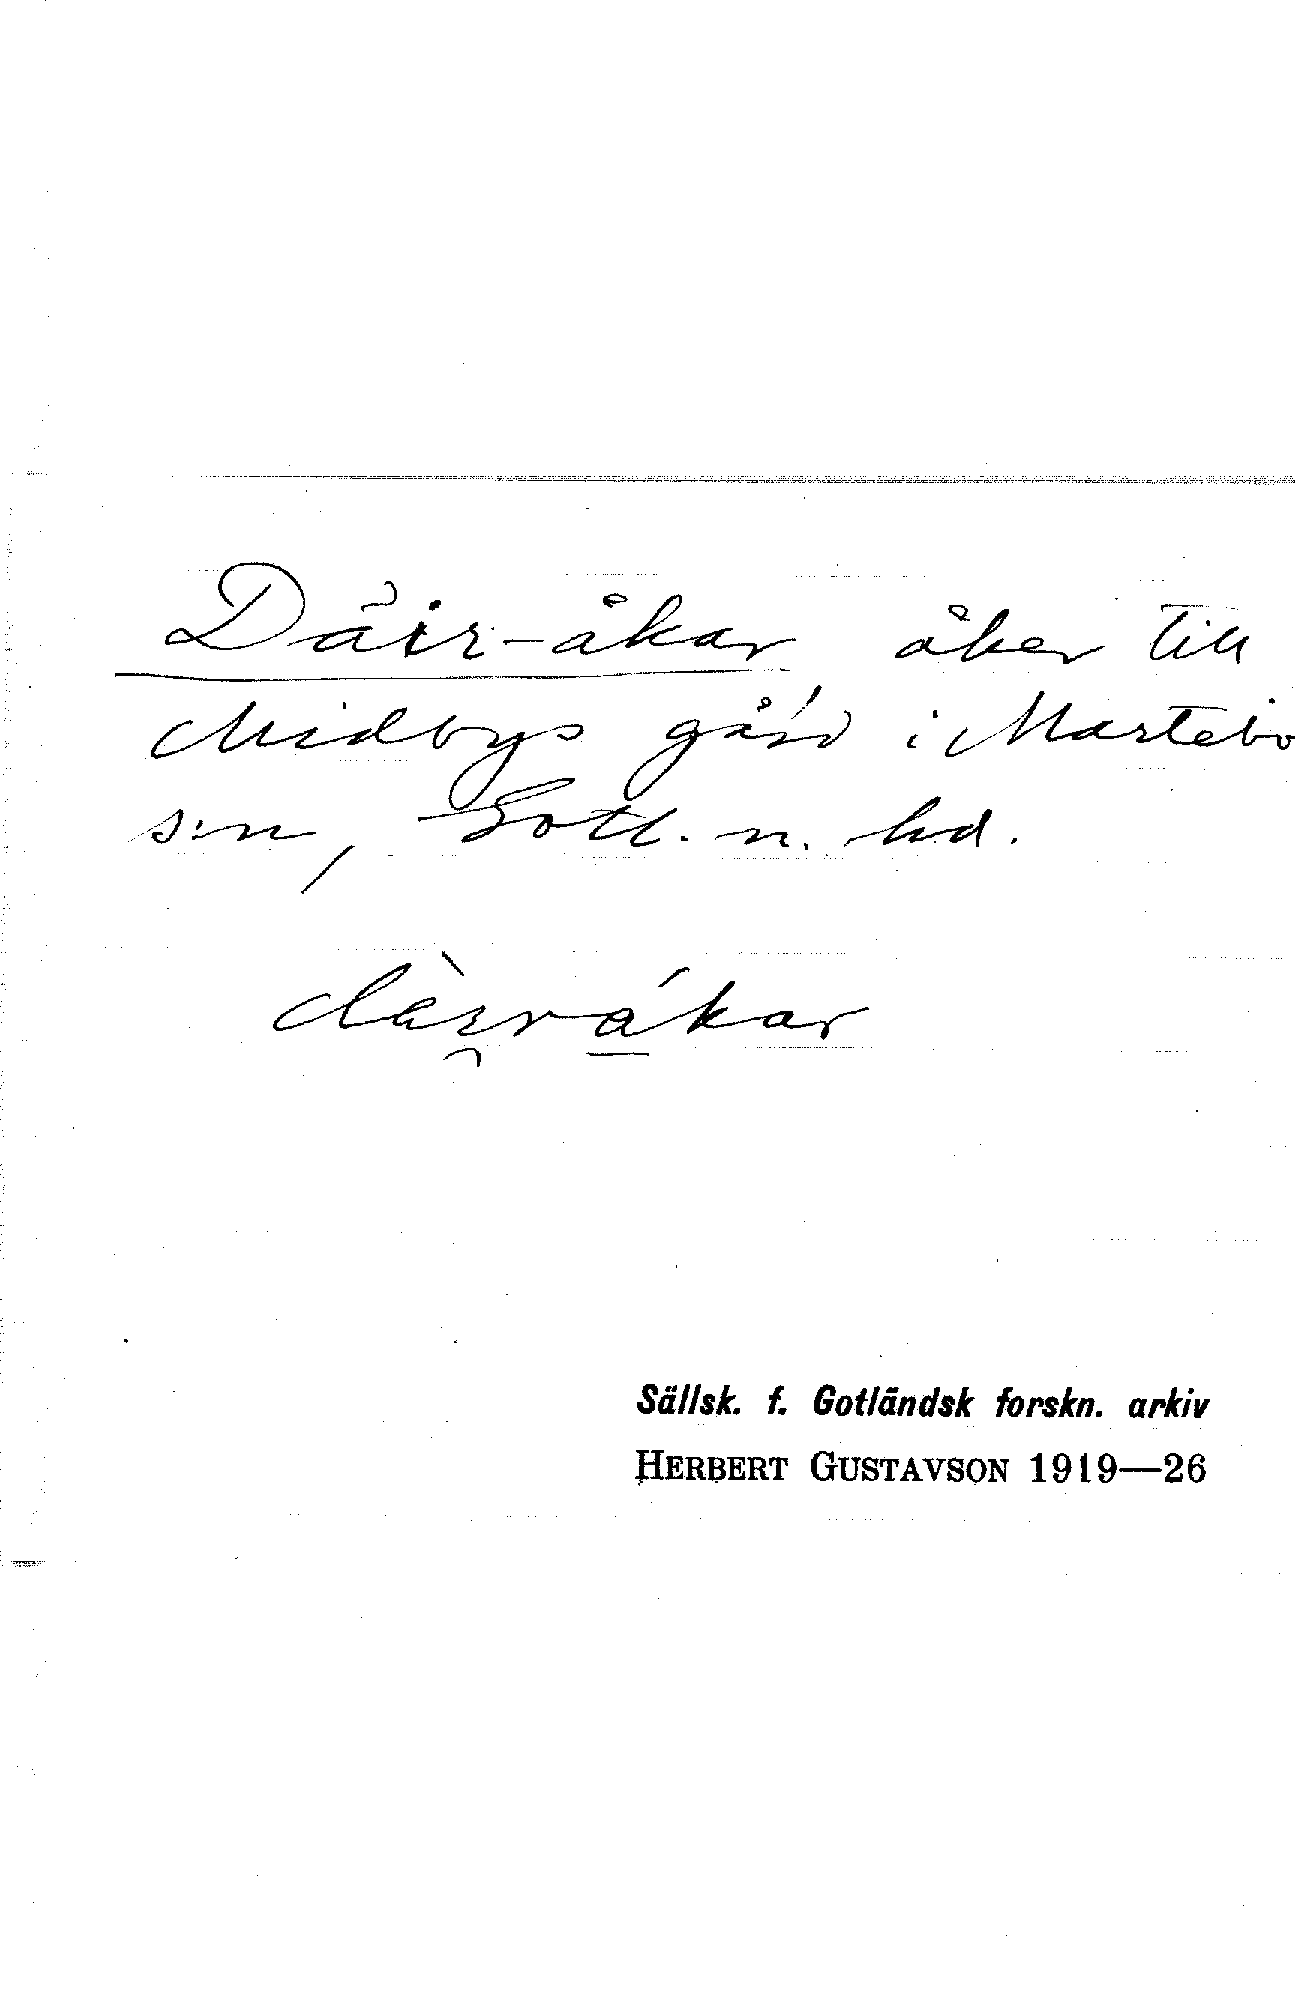 Däir-åkar åker till
Midbys gård i Martebo
s:n, Gotl. n. hd.
Sällsk. f. Gotländsk forskn. arkiv
HERBERT GUSTAVSON 1919—26